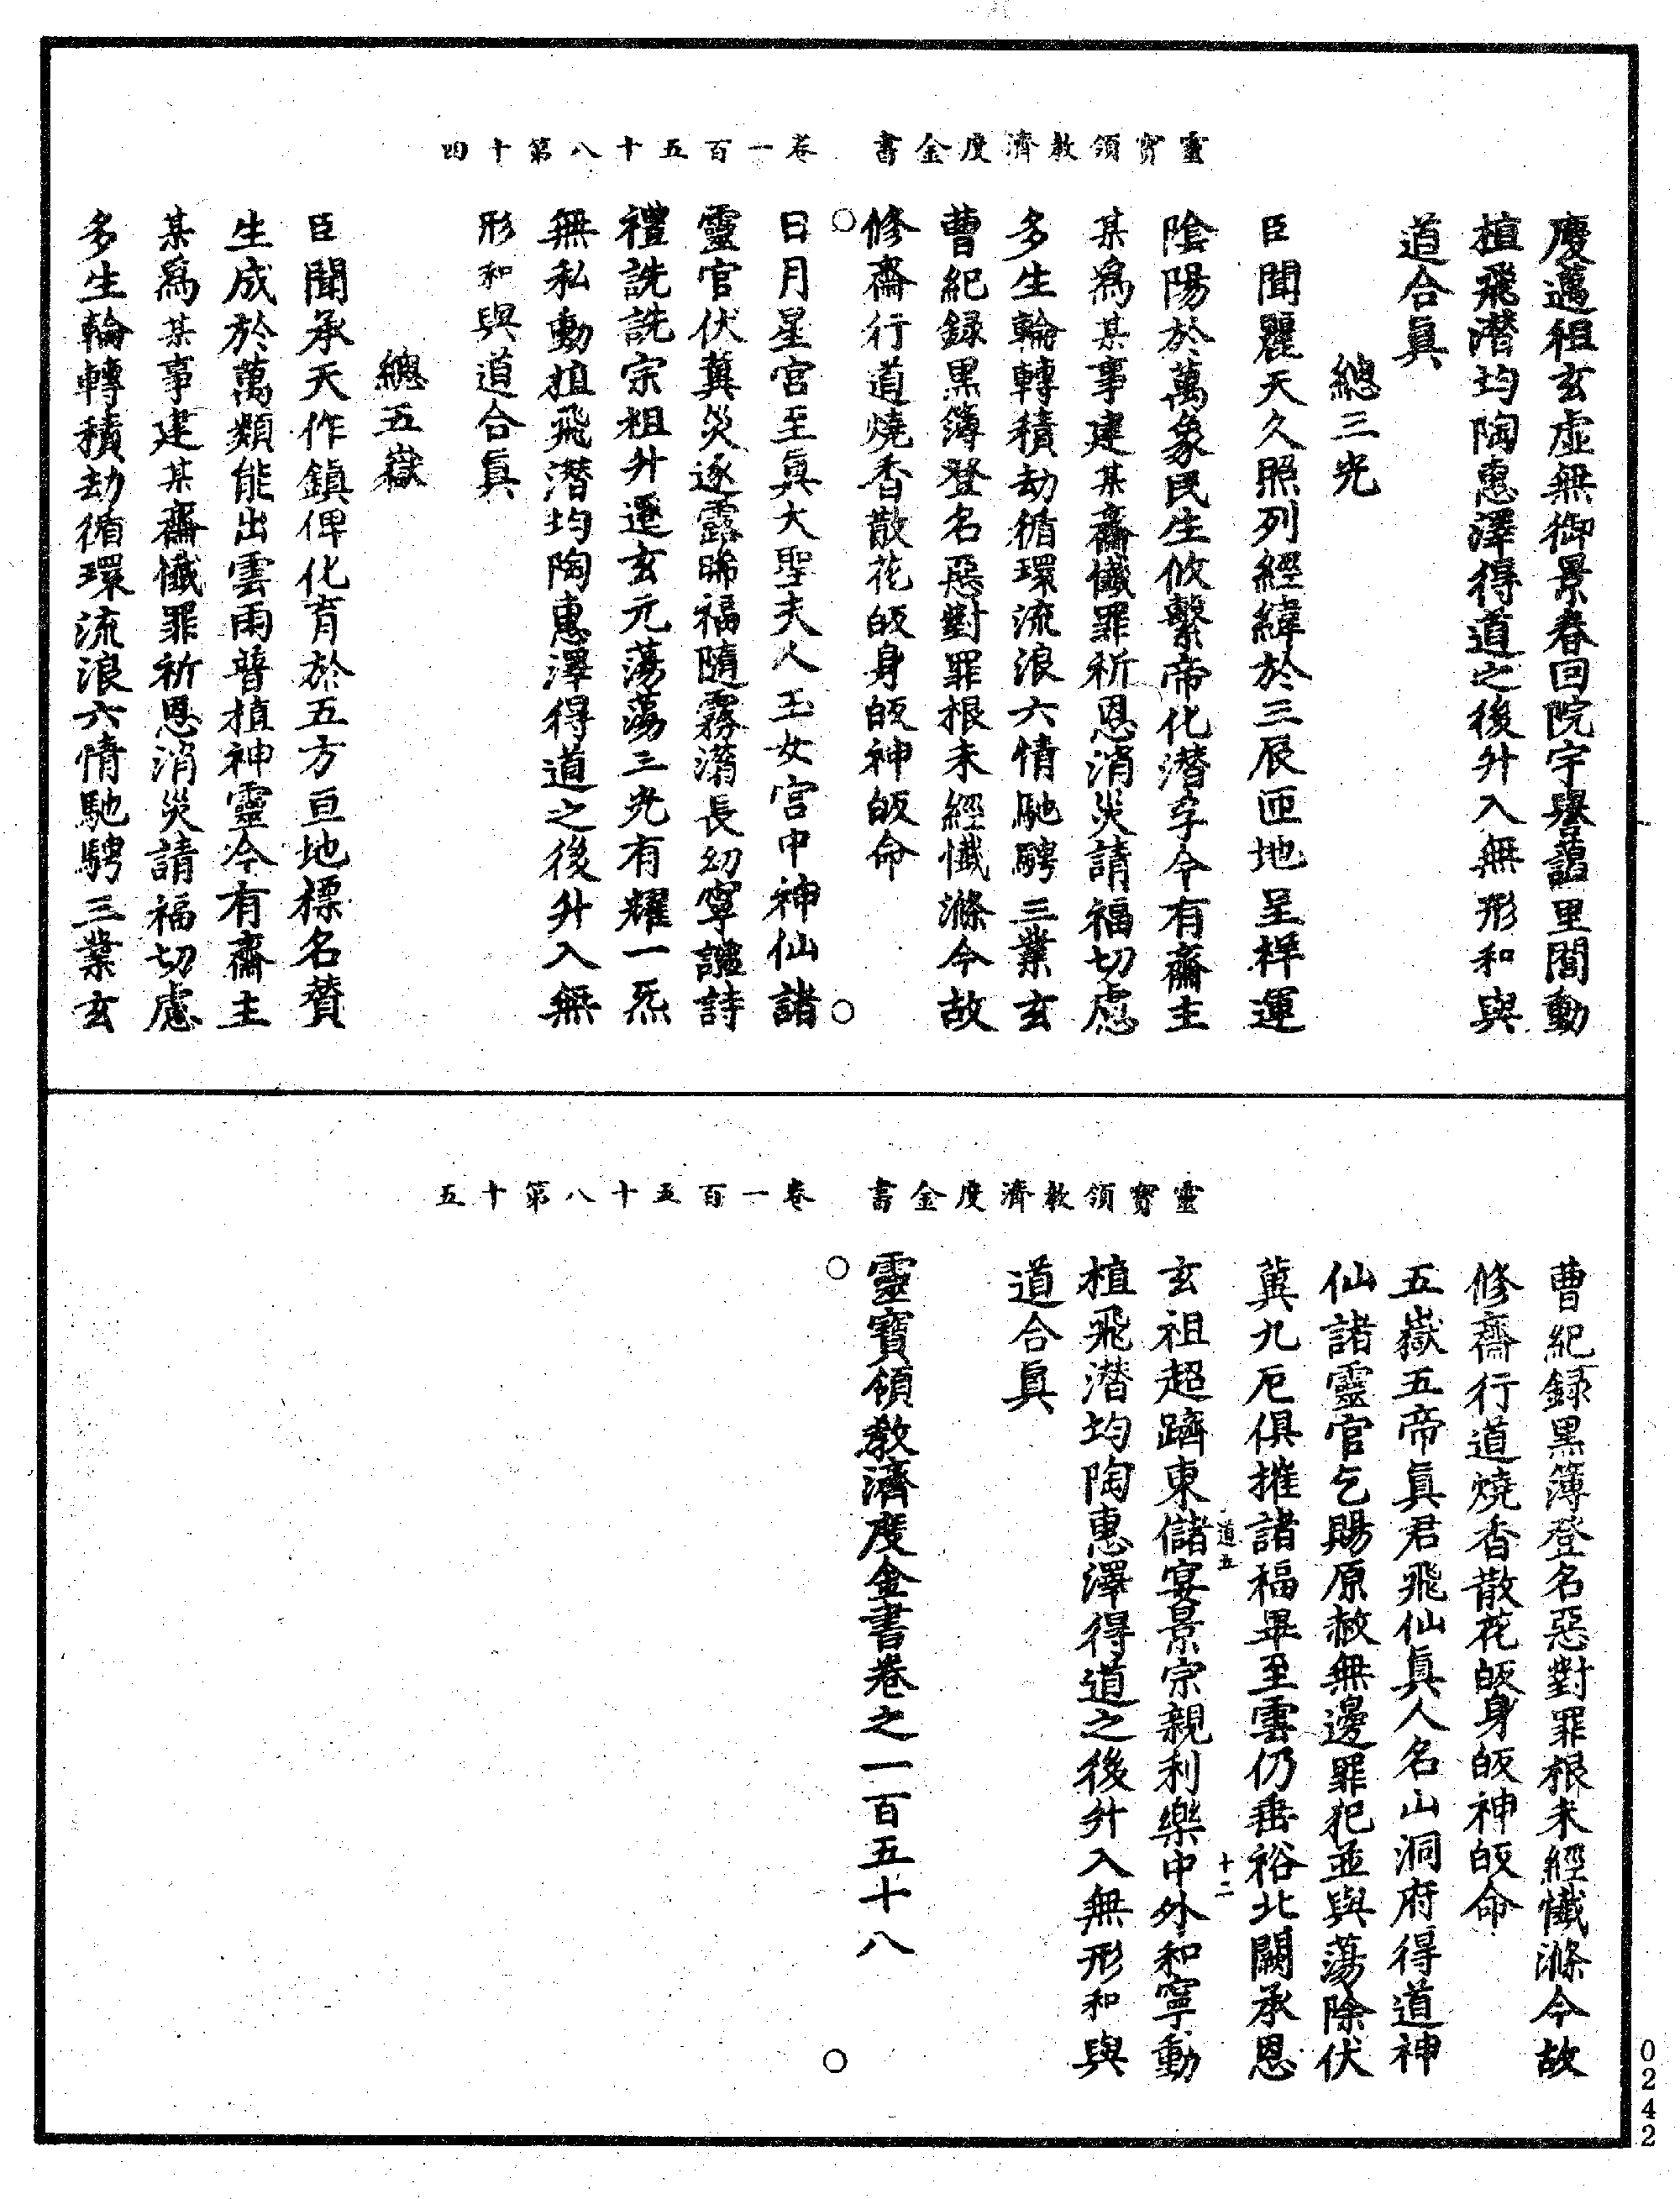 靈寶領教濟度金書　卷一百五十八第十四
慶邁祖玄虛無御景春回院宇譽藹里閭動
植飛潛均陶惠澤得道之後升入無形和與
道合眞
總三光
臣聞麗天久照列經緯於三辰匝地呈祥運
陰陽於萬象民生攸繫帝化潛孚今有齋主
某爲某事建某齋懺罪祈恩消災請福切慮
多生輪轉積劫循環流浪六情馳騁三業玄
曹紀録黑簿登名惡對罪根未經懺滌今故
修齋行道燒香散花皈身皈神皈命
日月星宫王眞大聖夫人玉女宫中神仙諸
靈官伏冀災逐露晞福隨霧瀹長幼寧謐詩
禮詵詵宗祖升遷玄元蕩蕩三光有耀一炁
無私動植飛潛均陶惠澤得道之後升入無
形和與道合眞
總五嶽
臣聞承天作鎮俾化育於五方亘地標名賛
生成於萬類能出雲雨普植神靈今有齋主
某爲某事建某齋懺罪祈恩消災請福切慮
多生輪轉積劫循環流浪六情馳騁三業玄
靈寶領教濟度金書　卷一百五十八第十五
曹紀録黑簿登名惡對罪根未經懺滌今故
修齋行道燒香散花皈身皈神皈命
五嶽五帝眞君飛仙眞人名山洞府得道神
仙諸靈官乞賜原赦無邊罪犯並與蕩除伏
冀九厄俱摧諸福畢至雲仍垂裕北闕承恩
道五　十二
玄祖超躋東儲宴景宗親利樂中外和寧動
植飛潛均陶惠澤得道之後升入無形和與
道合眞
靈寶領教濟度金書卷之一百五十八
0242